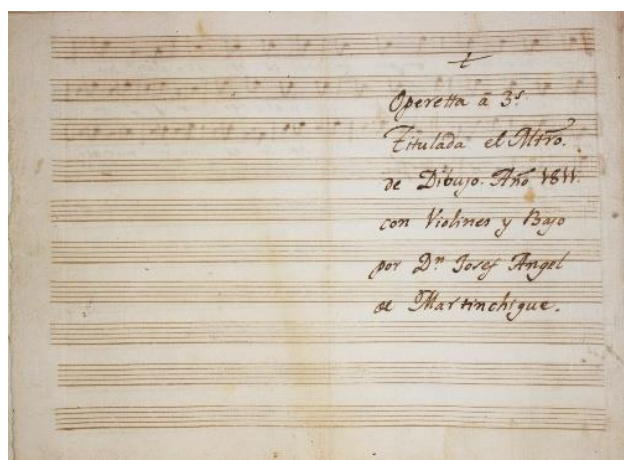 Operetta â 3.s
Titulada el Mtrõ.
de Dibujo. Año 1811.
con Violines y Bajo
por D.n Josef Angel
de Martinchique.